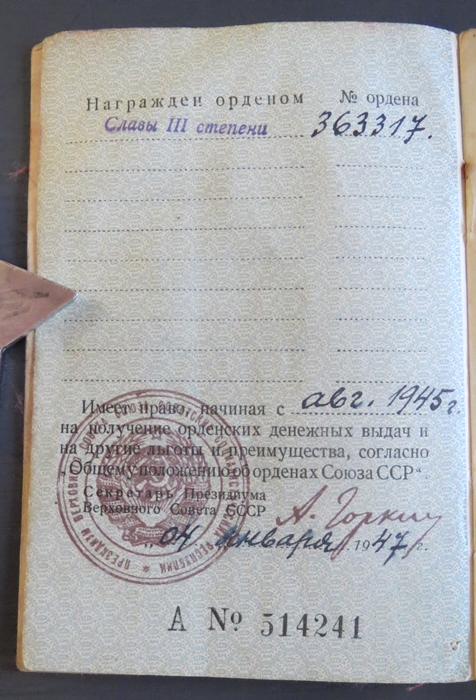 Награжден орденом № ордена
Славы III степени 363317.
Имеет право, начиная с авг. 1945 г.
на получение орденских денежных выдач и
на другие льготы и преимущества, согласно
„Общему положению об орденах Союза ССР“.
Секретарь Президиума
Верховного Совета СССР А. Горкин
„04 января 1947 г.
А № 514241